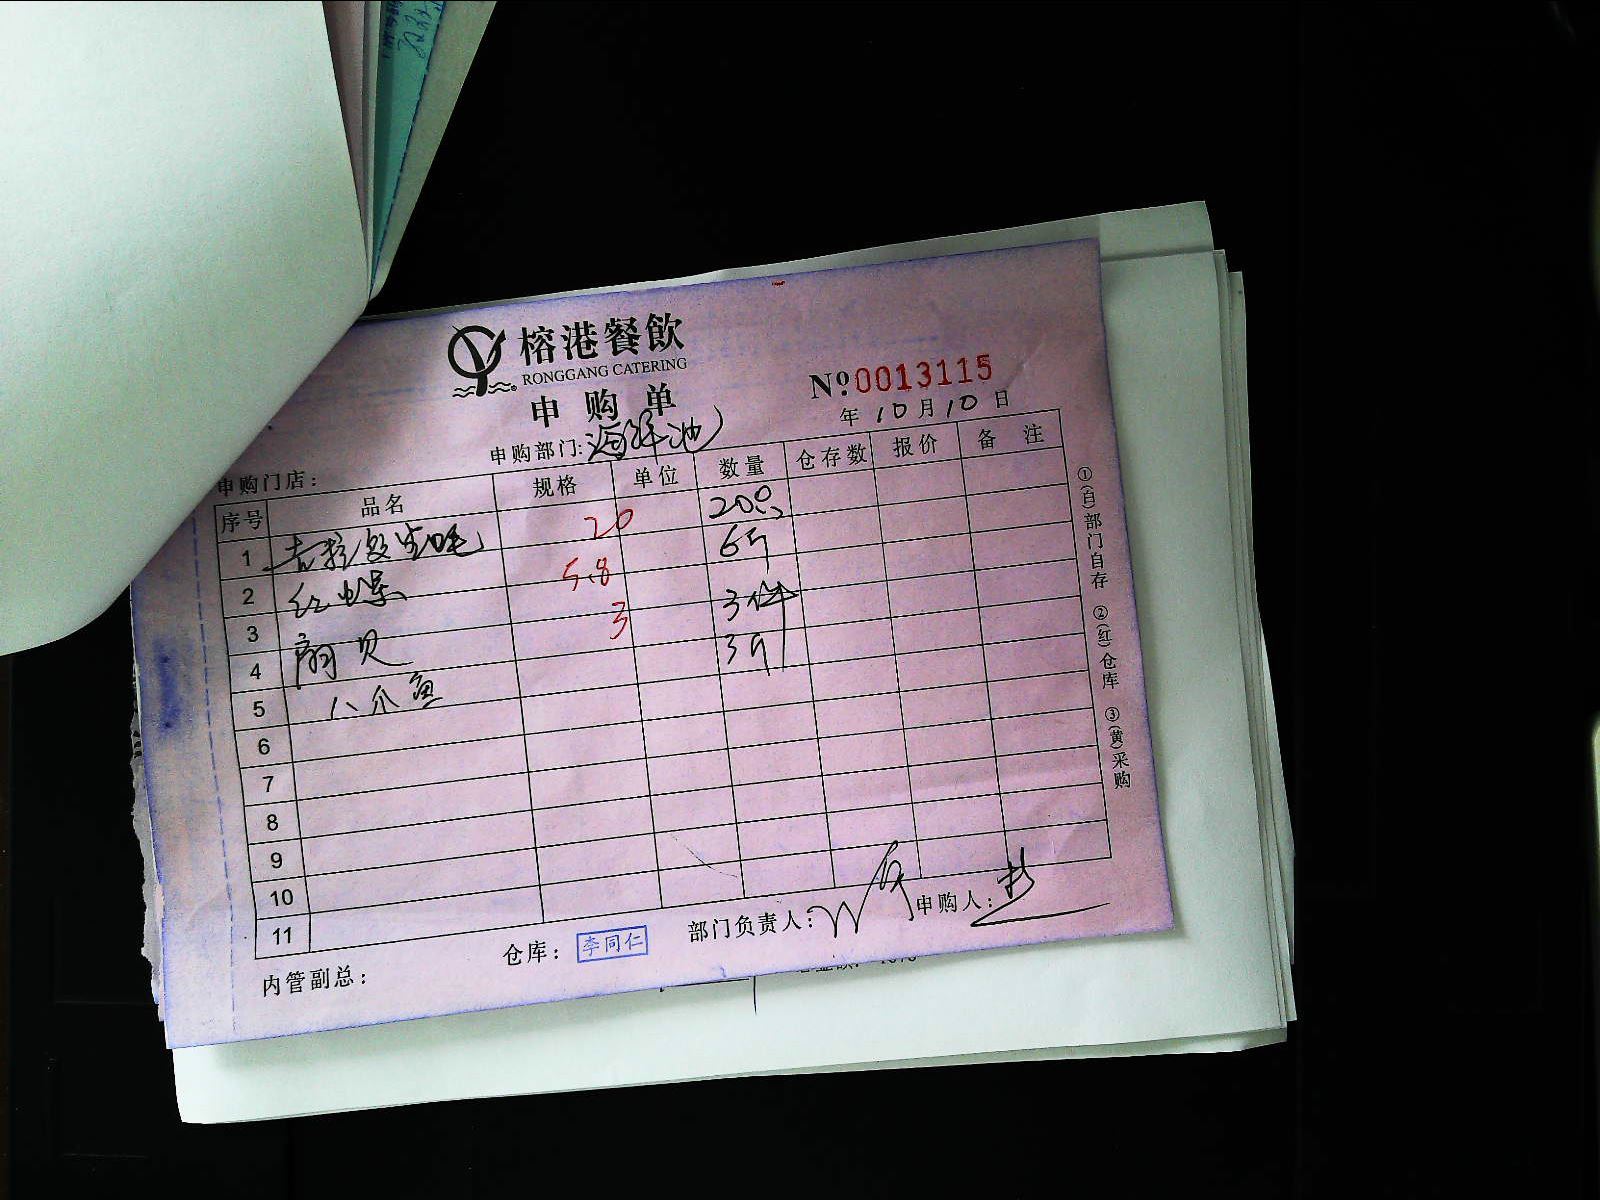 榕港餐飲
RONGGANG CATERING
申购单
№ 0013115
年 10月10日
申购门店：
申购部门：海鲜池
序号 品名 规格 单位 数量 仓存数 报价 备注
1 吉拉多生蚝 20 20只
2 红螺 5.8 6斤
3 扇贝 3 3件
4 八爪鱼 3斤
5
6
7
8
9
10
11
①(白)部门自存 ②(红)仓库 ③(黄)采购
内管副总：
仓库：李同仁
部门负责人：
申购人：